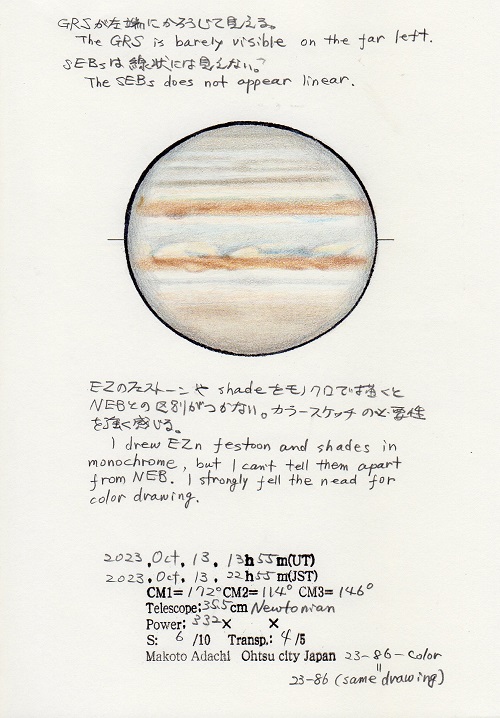 GRSが左端にかろうじて見える。
The GRS is barely visible on the far left.
SEBsは線状には見えない。
The SEBs does not appear linear.
EZのフェストーンや shadeをモノクロで描くと
NEBとの区別がつかない。カラースケッチの必要性
を強く感じる。
I drew EZn festoon and shades in
monochrome, but I can't tell them apart
from NEB. I strongly fell the need for
color drawing.
2023.Oct.13. 13h55m(UT)
2023.Oct.13. 22h55m(JST)
CM1=172° CM2=114° CM3=146°
Telescope;35.5cm Newtonian
Power; 332× ×
S: 6 /10 Transp.: 4/5
Makoto Adachi Ohtsu city Japan 23-86-color
=
23-86 (same drawing)